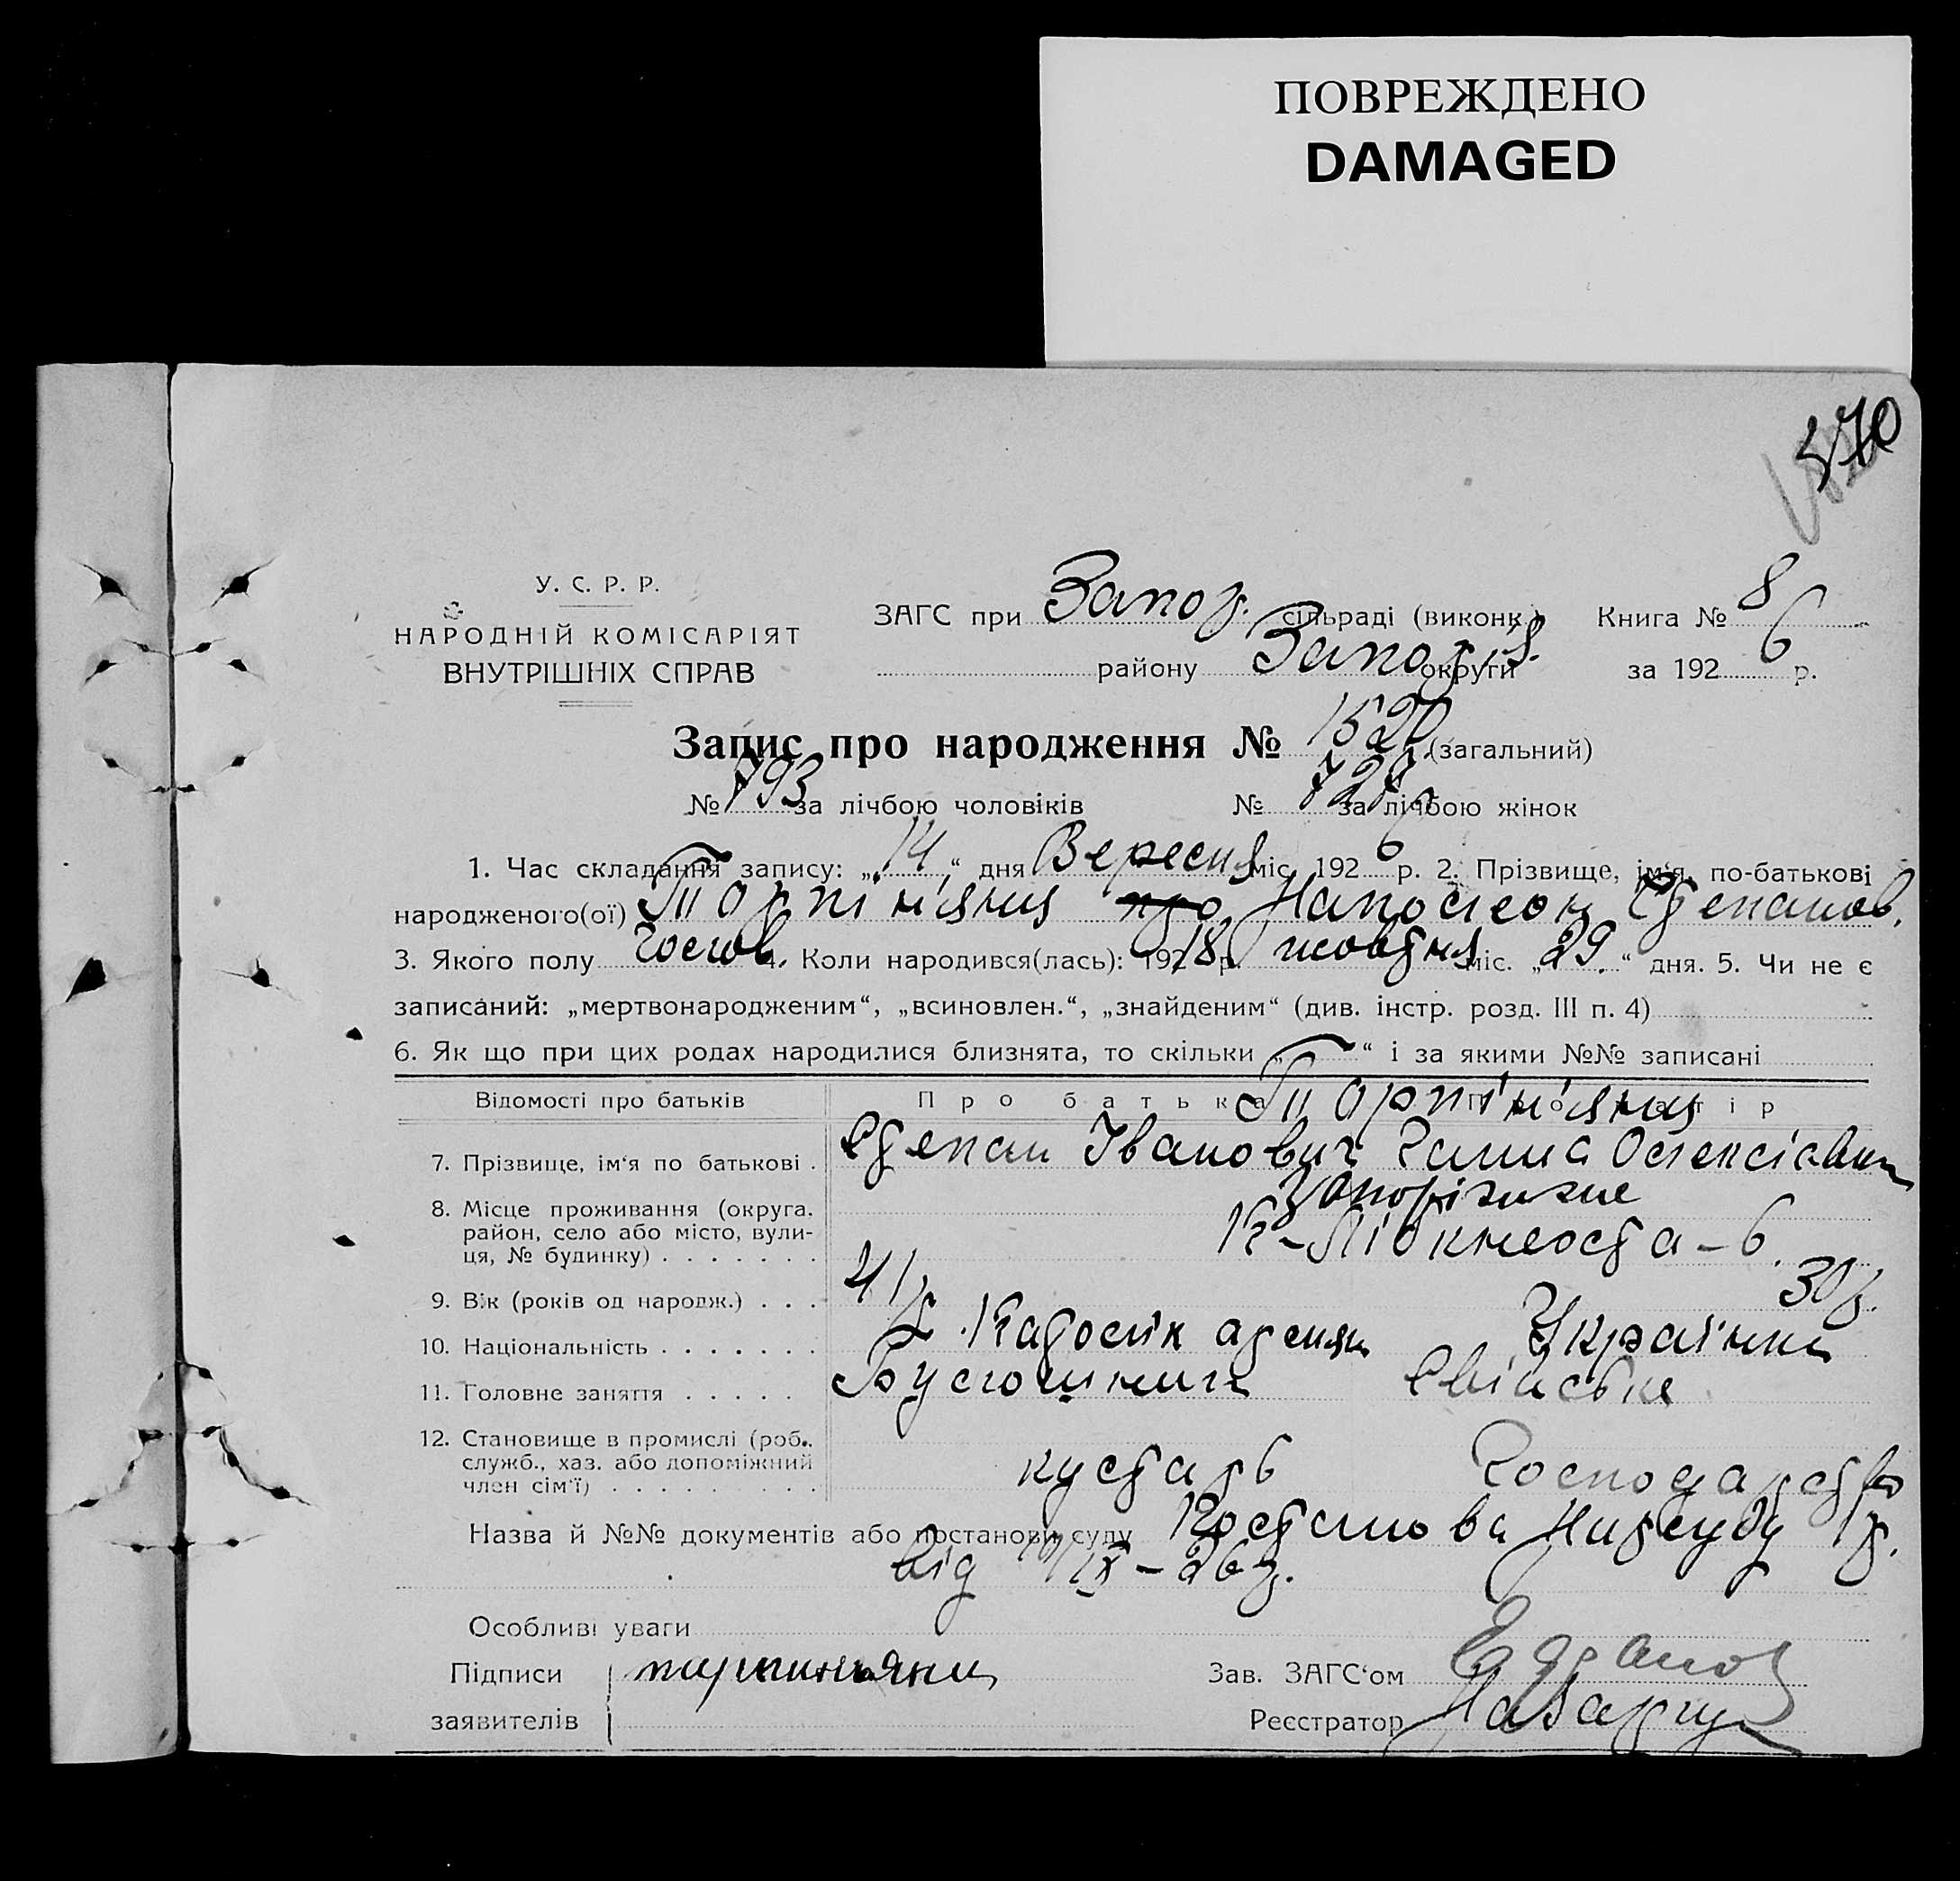 ПОВРЕЖДЕНО
DAMAGED
570
У. С. Р. Р.
НАРОДНІЙ КОМІСАРІЯТ
ВНУТРІШНІХ СПРАВ
ЗАГС при Запор. сільраді (виконк.) Книга № 8
району Запоріз. округи за 1926 р.
Запис про народження № 1520 (загальний)
№ 793 за лічбою чоловіків № за лічбою жінок
1. Час складання запису: „14“ дня Вересня міс. 1926 р. 2. Прізвище, ім‘я, по-батькові
народженого(ої) Торпіньянц Наполеон Степанов.
3. Якого полу Чолов. 4. Коли народився(лась): 1918 р. жовтня міс. „29.“ дня. 5. Чи не є
записаний: „мертвонародженим“, „всиновлен.“, „знайденим“ (див. інстр. розд. III п. 4)
6. Як що при цих родах народилися близнята, то скільки „ “ і за якими №№ записані
Відомості про батьків Про батька Про матір
Торпіньянц
7. Прізвище, ім‘я по батькові . Степан Іванович Ганна Олексіївна
8. Місце проживання (округа. Запоріжжє
район, село або місто, вули- К-Лібкнехта – 6
ця, № будинку) . . . . . . .
9. Вік (років од народж.) . . . 41 р. 30 р.
10. Національність . . . . . . . Українка
11. Головне заняття . . . . . Свійське
12. Становище в промислі (роб., кустарь Господарство
служб., хаз. або допоміжний
член сім‘ї) . . . . . . . . .
Назва й №№ документів або постанови суду Постанова Нарсуду
від IX – 26 р.
Особливі уваги
Підписи Зав. ЗАГС‘ом
заявителів Реєстратор